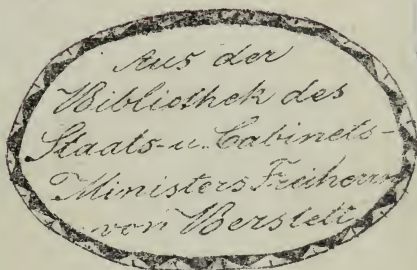 Aus der
Bibliothek des
Staats- u. Cabinets-
Ministers Freiherrn
von Berstett